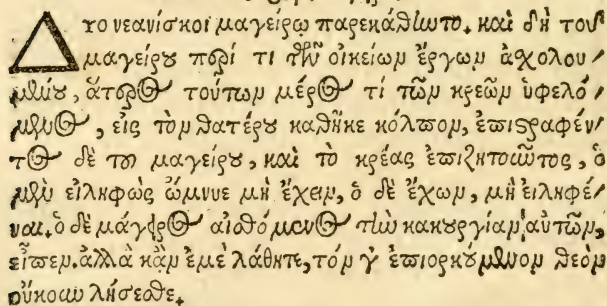 Δύο νεανίσκοι μαγείρῳ παρεκάθηντο. καὶ δὴ τοῦ
μαγείρου περί τι τῶν οἰκείων ἔργων ἀσχολου
μένου, ἅτερος τούτων μέρος τί τῶν κρεῶν ὑφελό
μενος, εἰς τὸν θατέρου καθῆκε κόλπον, ἐπιστραφέν
τος δὲ τοῦ μαγείρου, καὶ τὸ κρέας ἐπιζητοῦντος, ὁ
μὲν εἰληφὼς ὤμνυε μὴ ἔχειν, ὁ δὲ ἔχων, μὴ εἰληφέ
ναι. ὁ δὲ μάγειρος αἰσθόμενος τὴν κακουργίαν αὐτῶν,
εἶπεν. ἀλλὰ κἂν ἐμὲ λάθητε, τόν γ' ἐπιορκούμενον θεὸν
οὔκουν λήσεσθε.